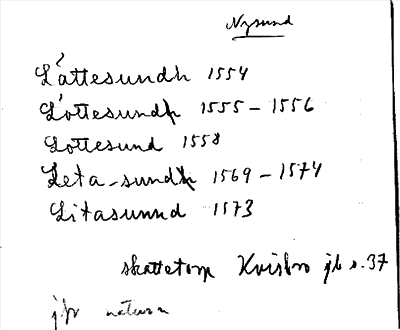 Nysund
Låttesundh 1554
Lottesundh 1555 – 1556
Lottesund 1558
Leta-sundh 1569 – 1574
Litasunnd 1573
skattetorp Kvisbro jb s. 37
jfr naturn